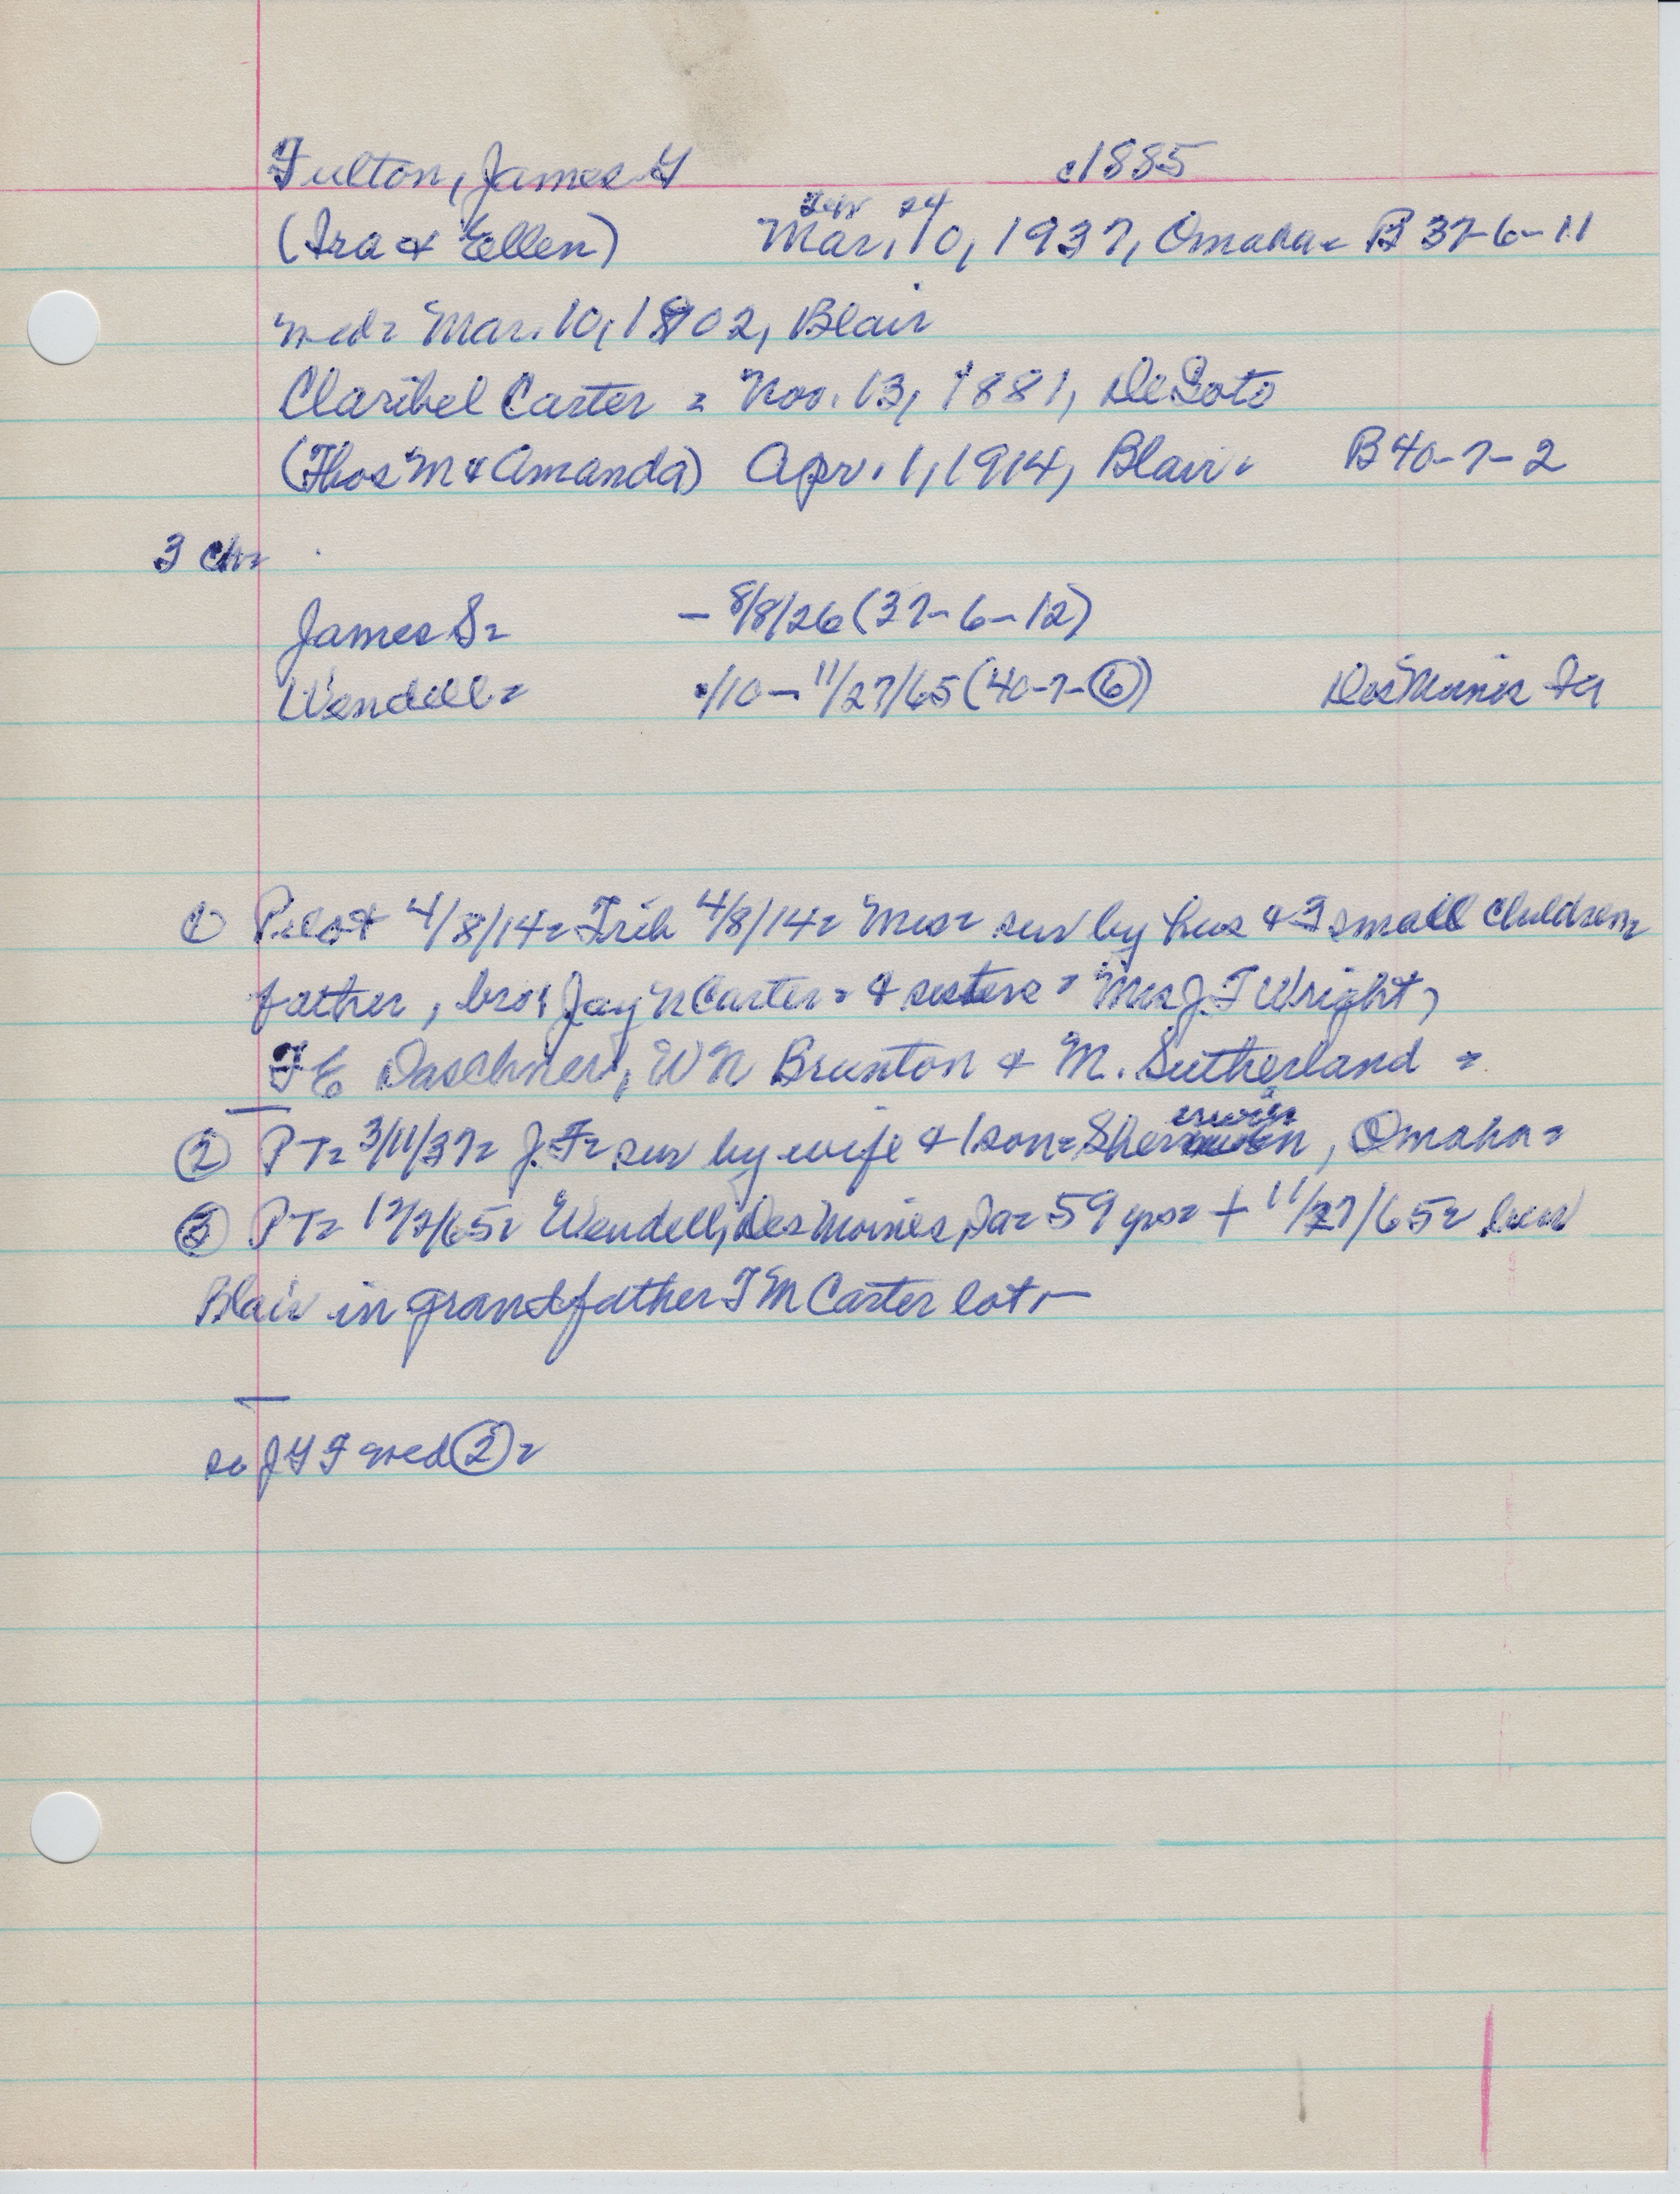 Fulton, James G c1885
Feb 24
(Ira & Ellen) Mar. 10, 1937, Omaha = B 37-6-11
med = Mar. 10, 1902, Blair
Claribel Carter = Nov. 13, 1881, DeSoto
(Thos M & Amanda) Apr. 1, 1914, Blair = B 40-7-2
3 ch =
James S = - 8/8/26 (37-6-12)
Wendell = /10 - 11/27/65 (40-7-6) Des Moines Ia
① Pilot 4/8/14 = Trib 4/8/14 = Mrs = sur by hus & 3 small children =
father, bro: Jay N Carter = & sisters = Mrs J. F Wright,
F E Daschner, W N Brunton & M. Sutherland =
② PT = 3/11/37 = J. F = sur by wife & 1 son = Sherwin, Omaha =
erwin
③ PT = 12/2/65 = Wendell, Des Moines, Ia = 59 yrs = + 11/27/65 = bur
Blair in grandfather T M Carter lot -
so J G F med ② =